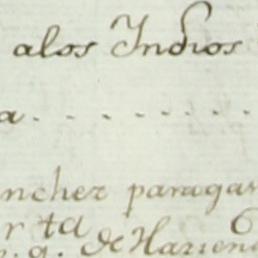 alos Indios
a. . . . . . . .
nchez paragar
r ta 6
. g. de Hazien